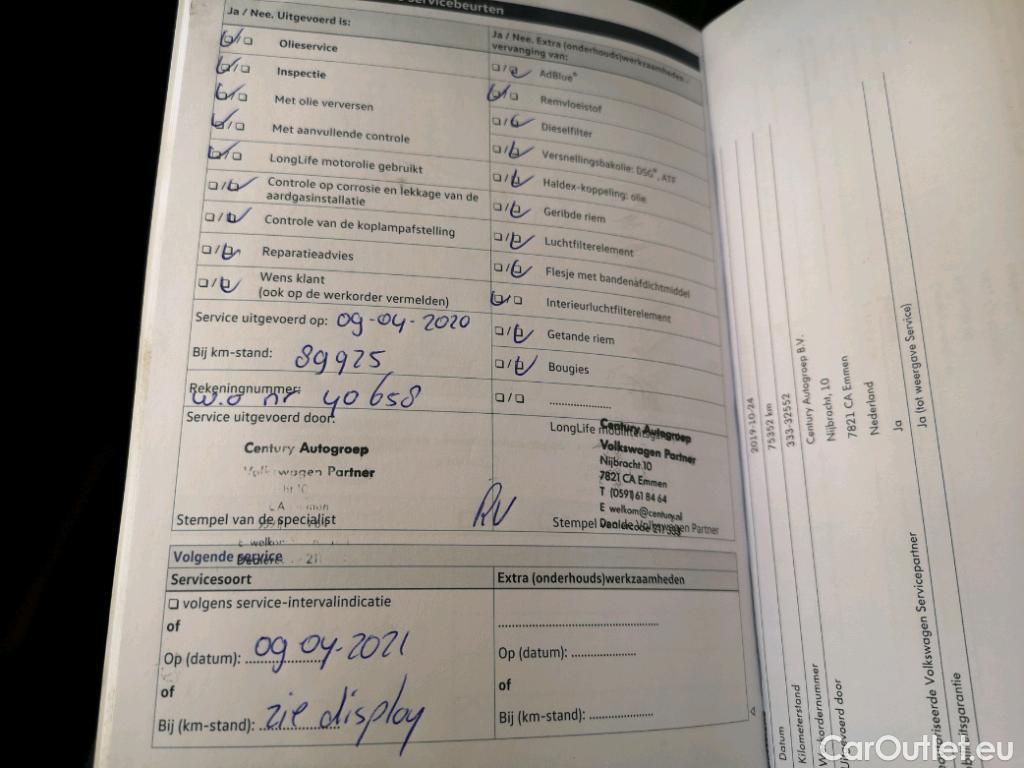 servicebeurten
Ja / Nee. Uitgevoerd is:
Olieservice
Inspectie
Met olie verversen
Met aanvullende controle
LongLife motorolie gebruikt
Controle op corrosie en lekkage van de
aardgasinstallatie
Controle van de koplampafstelling
Reparatieadvies
Wens klant
(ook op de werkorder vermelden)
Service uitgevoerd op: 09-04-2020
Bij km-stand: 89925
Rekeningnummer:
w.o nr 40658
Service uitgevoerd door:
Century Autogroep
Volkswagen Partner
Stempel van de specialist
Ja / Nee. Extra (onderhouds)werkzaamheden -
vervanging van:
AdBlue®
Remvloeistof
Dieselfilter
Versnellingsbakolie: DSG®, ATF
Haldex-koppeling: olie
Geribde riem
Luchtfilterelement
Flesje met bandenafdichtmiddel
Interieurluchtfilterelement
Getande riem
Bougies
LongLife
Century Autogroep
Volkswagen Partner
Nijbracht 10
7821 CA Emmen
T (0591) 61 84 64
E welkom@century.nl
Stempel van de Volkswagen Partner
RV
Volgende service
Servicesoort
volgens service-intervalindicatie
of
Op (datum): 09 04-2021
of
Bij (km-stand): zie display
Extra (onderhouds)werkzaamheden
Op (datum):
of
Bij (km-stand):
Datum 2019-10-24
Kilometerstand 75352 km
333-32552
Century Autogroep B.V.
Nijbracht, 10
7821 CA Emmen
Nederland
Ja
Volkswagen Servicepartner Ja (tot weergave Service)
CarOutlet.eu